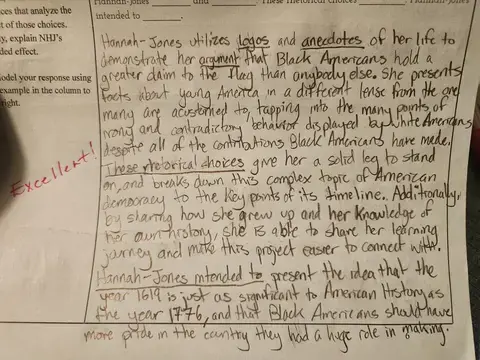 Hannah-Jones and These rhetorical choices Hannah-Jones
intended to
ces that analyze the
ct of those choices.
y, explain NHJ's
ded effect.
odel your response using
example in the column to
right.
Excellent!
Hannah-Jones utilizes logos and anecdotes of her life to
demonstrate her argument that Black Americans hold a
greater claim to the flag than anybody else. She presents
facts about young America in a different lense from the one
many are acustomed to, tapping into the many points of
irony and contradictory behavior displayed by white Americans
despite all of the contributions Black Americans have made.
These rhetorical choices give her a solid leg to stand
on, and breaks down this complex topic of American
democracy to the key points of its timeline. Additionally,
by sharing how she grew up and her knowledge of
her own history, she is able to share her learning
journey and make this project easier to connect with.
Hannah-Jones intended to present the idea that the
year 1619 is just as significant to American History as
the year 1776, and that Black Americans should have
more pride in the country they had a huge role in making.